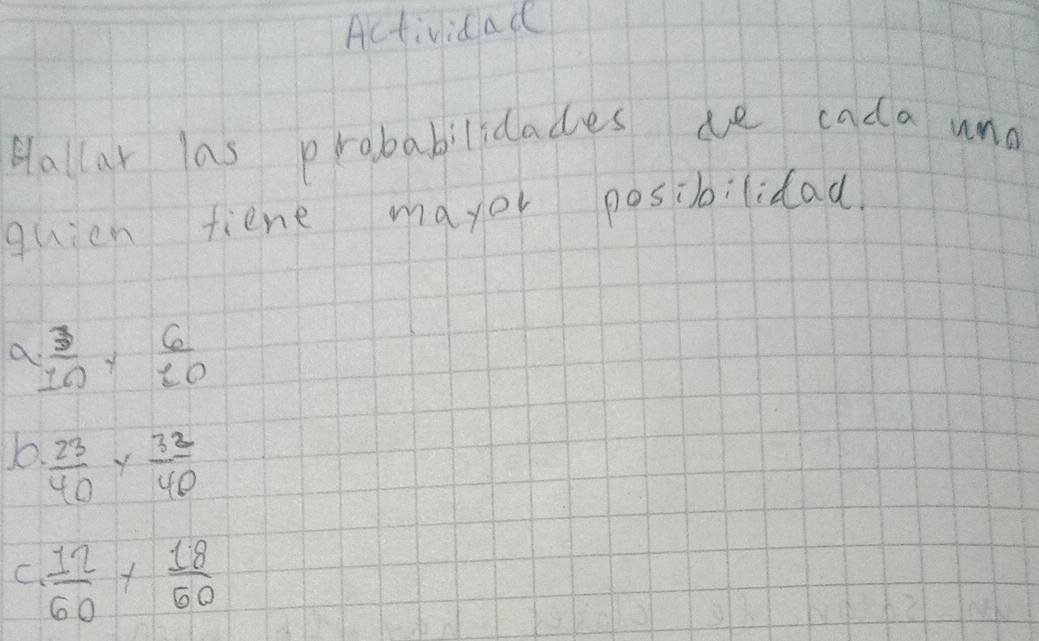 Actividad
Hallar las probabilidades de cada uno
quien tiene mayor posibilidad.
a. 3/10 y 6/10
b. 23/40 y 32/40
c. 12/60 y 18/60